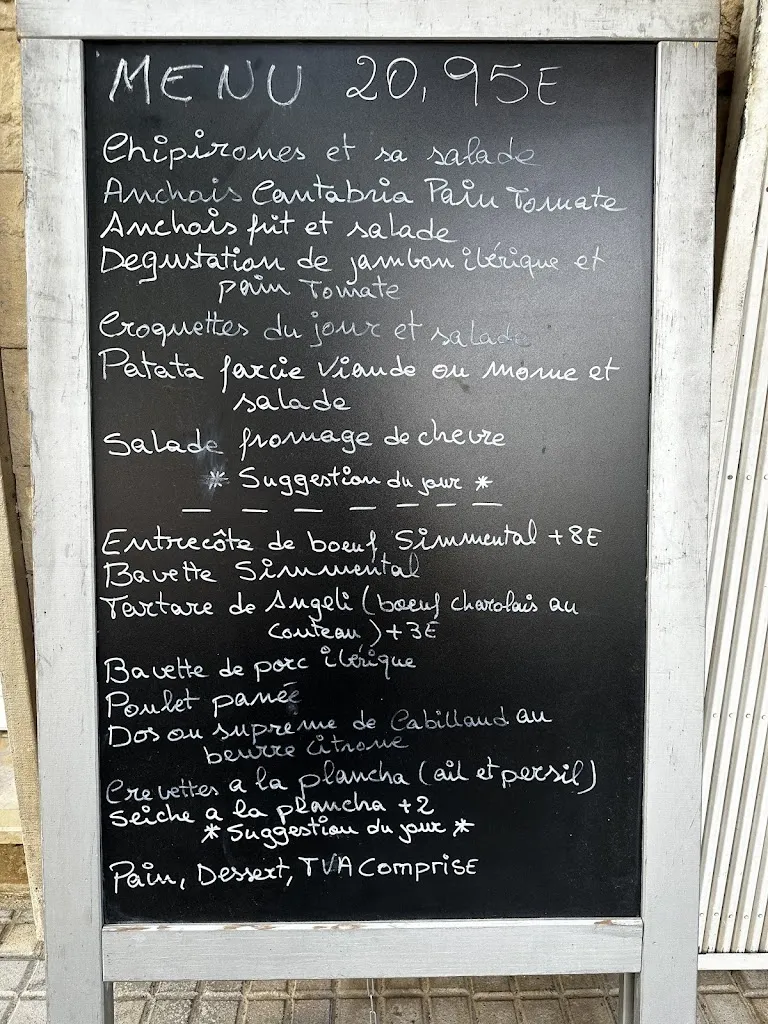 MENU 20,95E
Chipirones et sa salade
Anchois Cantabria Pain Tomate
Anchois frit et salade
Degustation de jambon ibérique et
pain Tomate
Croquettes du jour et salade
Patata farcie viande ou morue et
salade
Salade fromage de chevre
* Suggestion du jour *
Entrecôte de boeuf Simmental +8E
Bavette Simmental
Tartare de Angeli (boeuf charolais au
couteau) +3E
Bavette de porc ibérique
Poulet panée
Dos ou suprème de Cabillaud au
beurre citrone
Crevettes a la plancha (ail et persil)
Seiche a la plancha +2
* Suggestion du jour *
Pain, Dessert, TVA Comprise